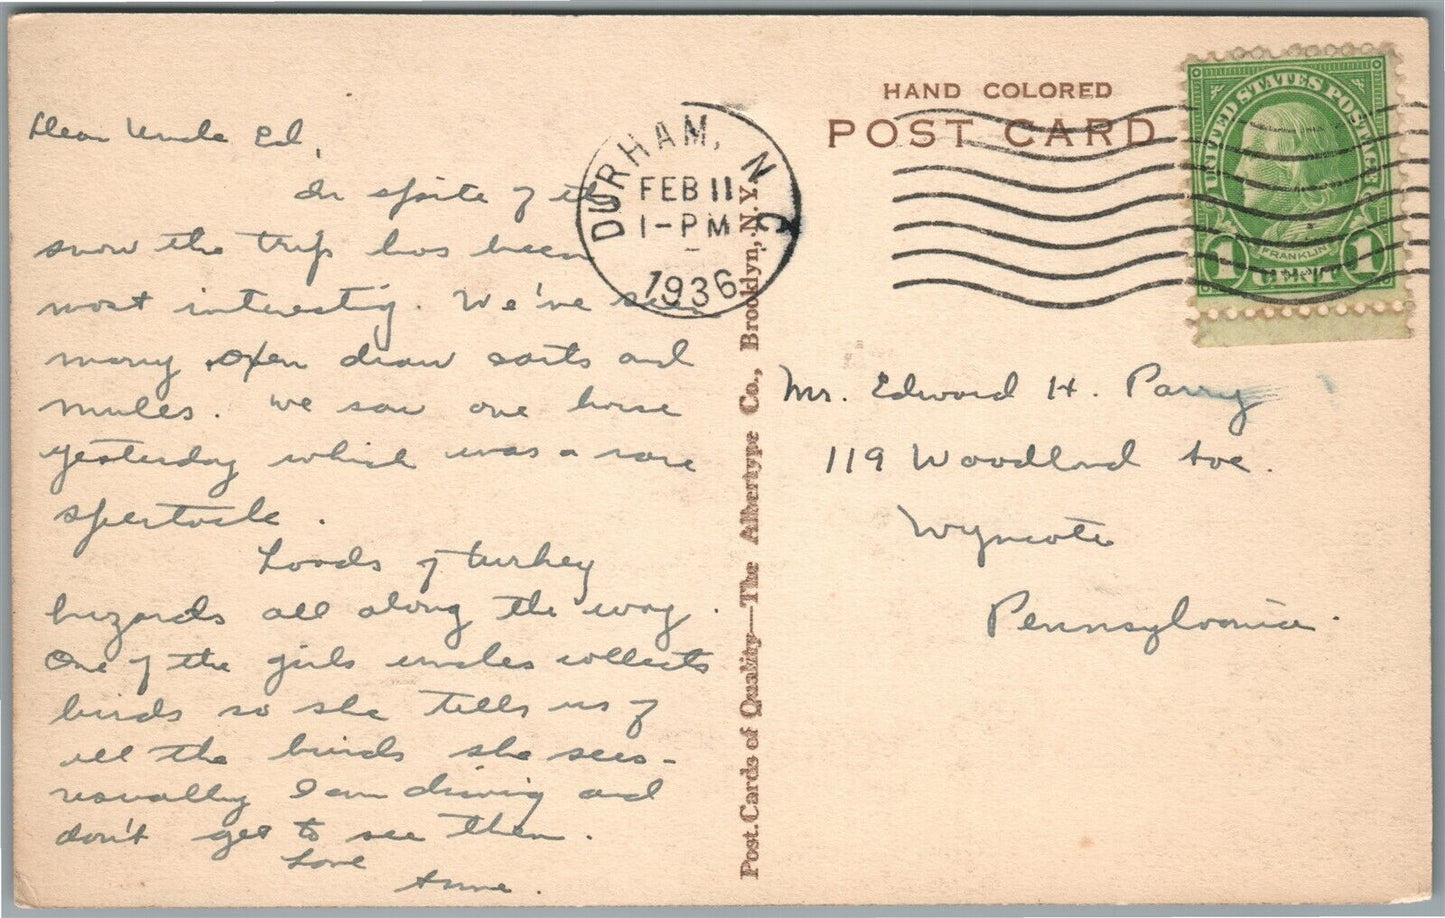 Dear Uncle Ed,
In spite of the
snow the trip has been
most interestig. We've seen
many open draw carts and
mules. We saw one horse
yesterday which was a rare
spectacle.
Loads of turkey
buzards all along the way.
One of the girls uncles collects
birds so she tells us of
all the birds she sees-
usually I am driving and
don't get to see them.
Love
Anne.
DURHAM, N.C.
FEB 11
1-PM
1936
Post Cards of Quality—The Albertype Co., Brooklyn, N.Y.
HAND COLORED
POST CARD
UNITED STATES POSTAGE
FRANKLIN
1 CENT 1
Mr. Edward H. Parry
119 Woodland Ave.
Wyncote
Pennsylvania.